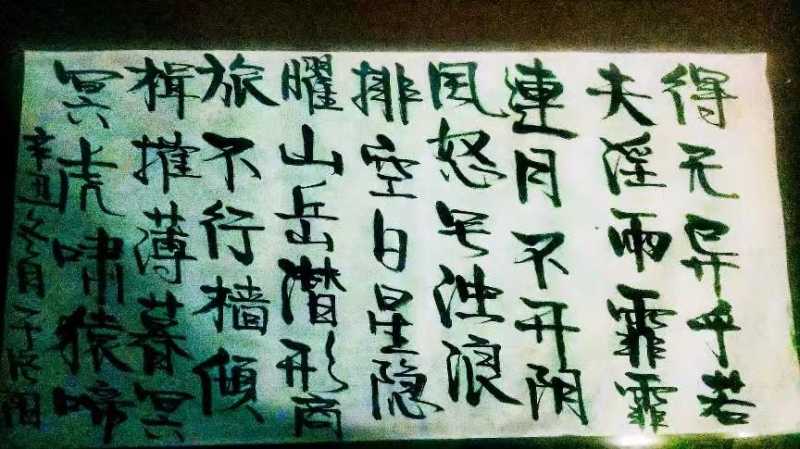 得无异乎若
夫淫雨霏霏
連月不开阴
风怒号浊浪
排空日星隐
曜山岳潜形商
旅不行樯傾
楫摧薄暮冥
冥虎啸猿啼
辛丑冬月